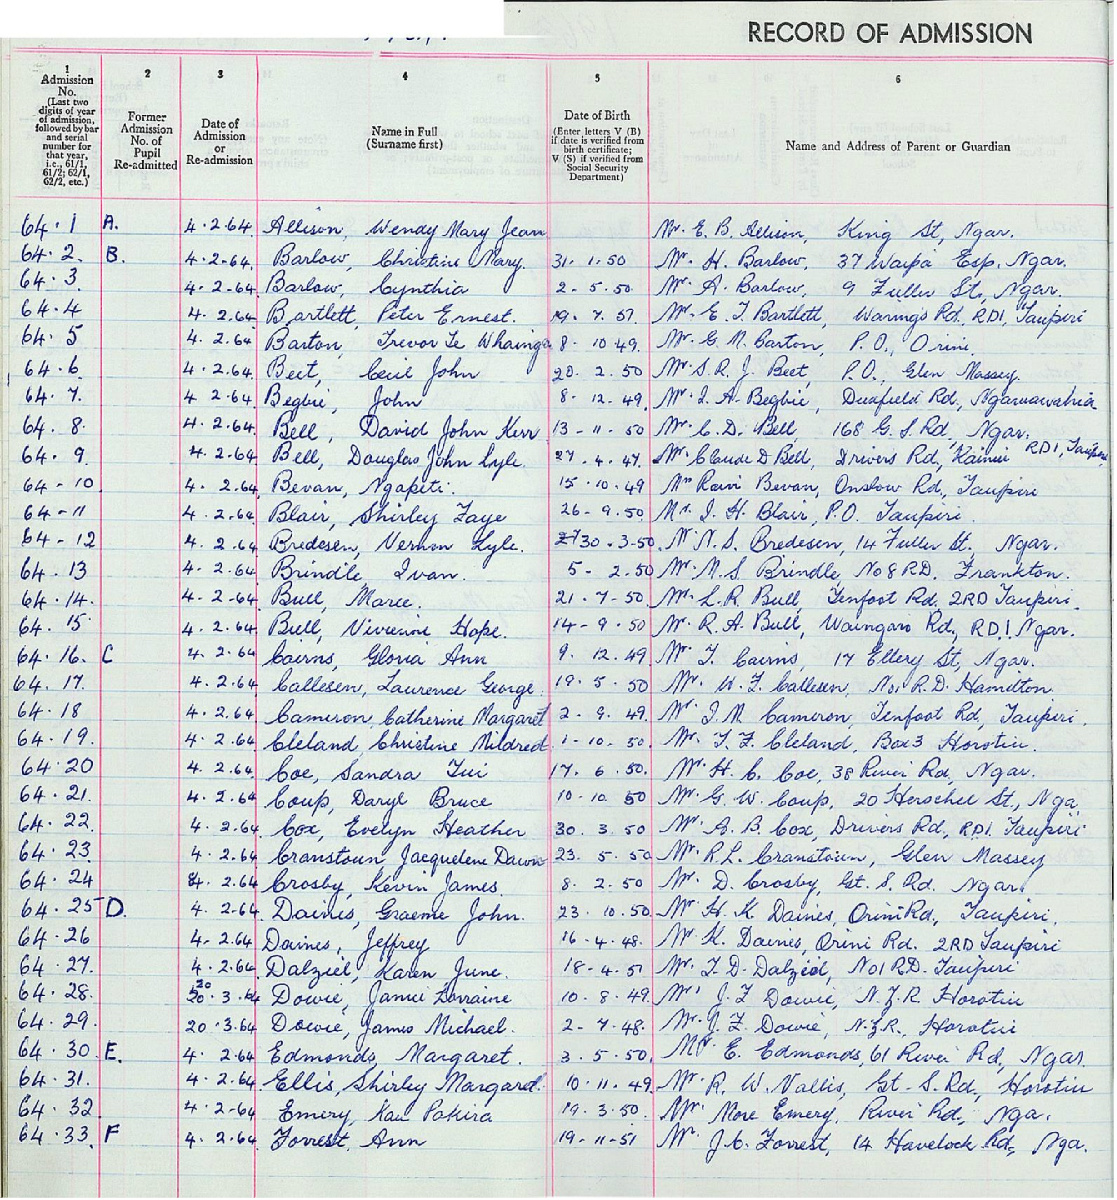 RECORD OF ADMISSION
1 2 3 4 5 6
Admission No. (Last two digits of year of admission, followed by bar and serial number for that year, i.e., 61/1, 61/2; 62/1, 62/2, etc.)
Former Admission No. of Pupil Re-admitted
Date of Admission or Re-admission
Name in Full (Surname first)
Date of Birth (Enter letters V (B) if date is verified from birth certificate; V (S) if verified from Social Security Department)
Name and Address of Parent or Guardian
64·1 A. 4.2.64. Allison, Wendy Mary Jean Mr. E. B. Allison, King St, Ngar.
64·2. B. 4.2.64. Barlow, Christine Mary. 31.1.50 Mr. H. Barlow, 37 Waipa Esp. Ngar.
64·3 4.2.64 Barlow, Cynthia 2-5.50 Mr. A. Barlow, 9 Fuller St, Ngar.
64·4 4.2.64 Bartlett, Peter Ernest. 19.7.51 Mr. E. J. Bartlett, Warings Rd, RD1, Taupiri
64·5 4.2.64 Barton, Trevor Te Whainga 8-10 49. Mr. G. N. Barton, P.O., Orini.
64·6 4.2.64. Beet, Cecil John 20.2.50 Mr. S. R. J. Beet, P.O., Glen Massey.
64·7. 4 2.64 Begbie, John 8.12.49. Mr. I. A. Begbie, Duafield Rd, Ngaruawahia
64·8. 4.2.64 Bell, David John Kerr 13-11-50 Mr. C. D. Bell, 168 G. S. Rd, Ngar.
64·9. 4.2.64 Bell, Douglas John Lyle. 27.4.47. Mr. Claude D Bell, Drivers Rd, Rainui RD1, Taupiri
64-10 4.2.64, Bevan, Ngapiti. 15.10.49 Mr Rawi Bevan, Onslow Rd, Taupiri
64-11 4.2.64. Blair, Shirley Faye 26-9.50 Mr. I. H. Blair, P.O. Taupiri.
64-12 4.2.64 Bredesen, Vernon Lyle. 30.3-50. Mr. N. S. Bredesen, 14 Fuller St. Ngar.
64.13 4.2.64 Brindle, Ivan. 5-2.50 Mr. N. S. Brindle, No 8 RD. Frankton.
64.14. 4.2.64 Bull, Maree. 21.7-50 Mr. L. R. Bull, Tenfoot Rd. 2RD Taupiri.
64.15 4.2.64. Bull, Vivienne Hope. 14-9.50 Mr. R. A. Bull, Waingaro Rd, R.D.1 Ngar.
64.16. C 4.2.64 Cairns, Gloria Ann 9.12.49 Mr. T. Cairns, 17 Ellery St, Ngar.
64.17. 4.2.64. Callesen, Laurence George. 19.5.50 Mr. W. F. Callesen, No1 R.D. Hamilton
64.18 4.2.64. Cameron, Catherine Margaret 2-9.49. Mr. I. M. Cameron, Tenfoot Rd, Taupiri.
64.19. 4.2.64 Cleland, Christine Mildred 1-10.50. Mr. T. F. Cleland, Box 3 Horotiu.
64.20 4.2.64. Coe, Sandra Tui 17.6.50. Mr. H. C. Coe, 38 River Rd, Ngar.
64.21. 4.2.64 Coup, Daryl Bruce 10.10 50 Mr. G. W. Coup, 20 Herschel St., Nga
64.22. 4.2.64 Cox, Evelyn Heather 30.3.50 Mr. A. B. Cox, Drivers Rd, R.D.1. Taupiri
64.23 4.2.64 Cranstoun, Jacquelene Dawn 23.5.50 Mr. R. L. Cranstoun, Glen Massey
64.24 4.2.64 Crosby, Kevin James. 8.2.50 Mr. D. Crosby, Gt. S. Rd. Ngar.
64.25 D. 4.2-64 Daines, Graeme John. 23.10.50. Mr. H. K. Daines, Orini Rd, Taupiri.
64.26 4.2.64 Daines, Jeffrey 16.4.48. Mr. K. Daines, Orini Rd. 2RD Taupiri
64.27. 4.2.64 Dalziel, Karen June. 18-4.51 Mr. T. D. Dalziel, No1 R.D. Taupiri
64.28. 20.3.64 Dowie, Janice Lorraine 10.8.49. Mr. J. F Dowie, N.Z.R Horotiu
64.29. 20.3.64 Dowie, James Michael. 2-7.48. Mr. J. F. Dowie, N.Z.R. Horotiu
64.30 E. 4.2.64 Edmonds, Margaret. 3.5.50. Mr. E. Edmonds, 61 River Rd, Ngar.
64.31. 4.2.64 Ellis, Shirley Margaret. 10.11.49 Mr. R. W. Vallis, Gt. S. Rd, Horotiu
64.32 4.2-64 Emery, Kau Pakira 19.3.50. Mr. More Emery, River Rd, Nga.
64.33. F 4.2.64 Forrest, Ann 19-11-51 Mr. J. C. Forrest, 14 Havelock Rd, Nga.